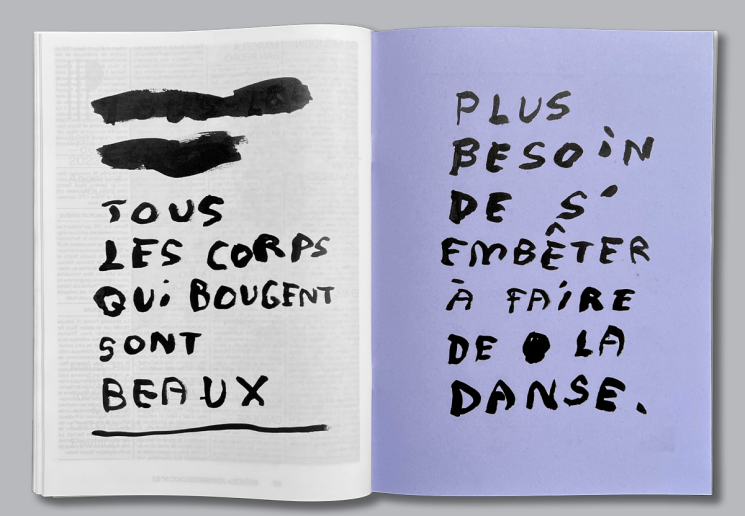 TOUS
LES CORPS
QUi BOUGENT
SONT
BEAUX
PLUS
BESOiN
DE S'
EMBÊTER
À FAiRE
DE LA
DANSE.